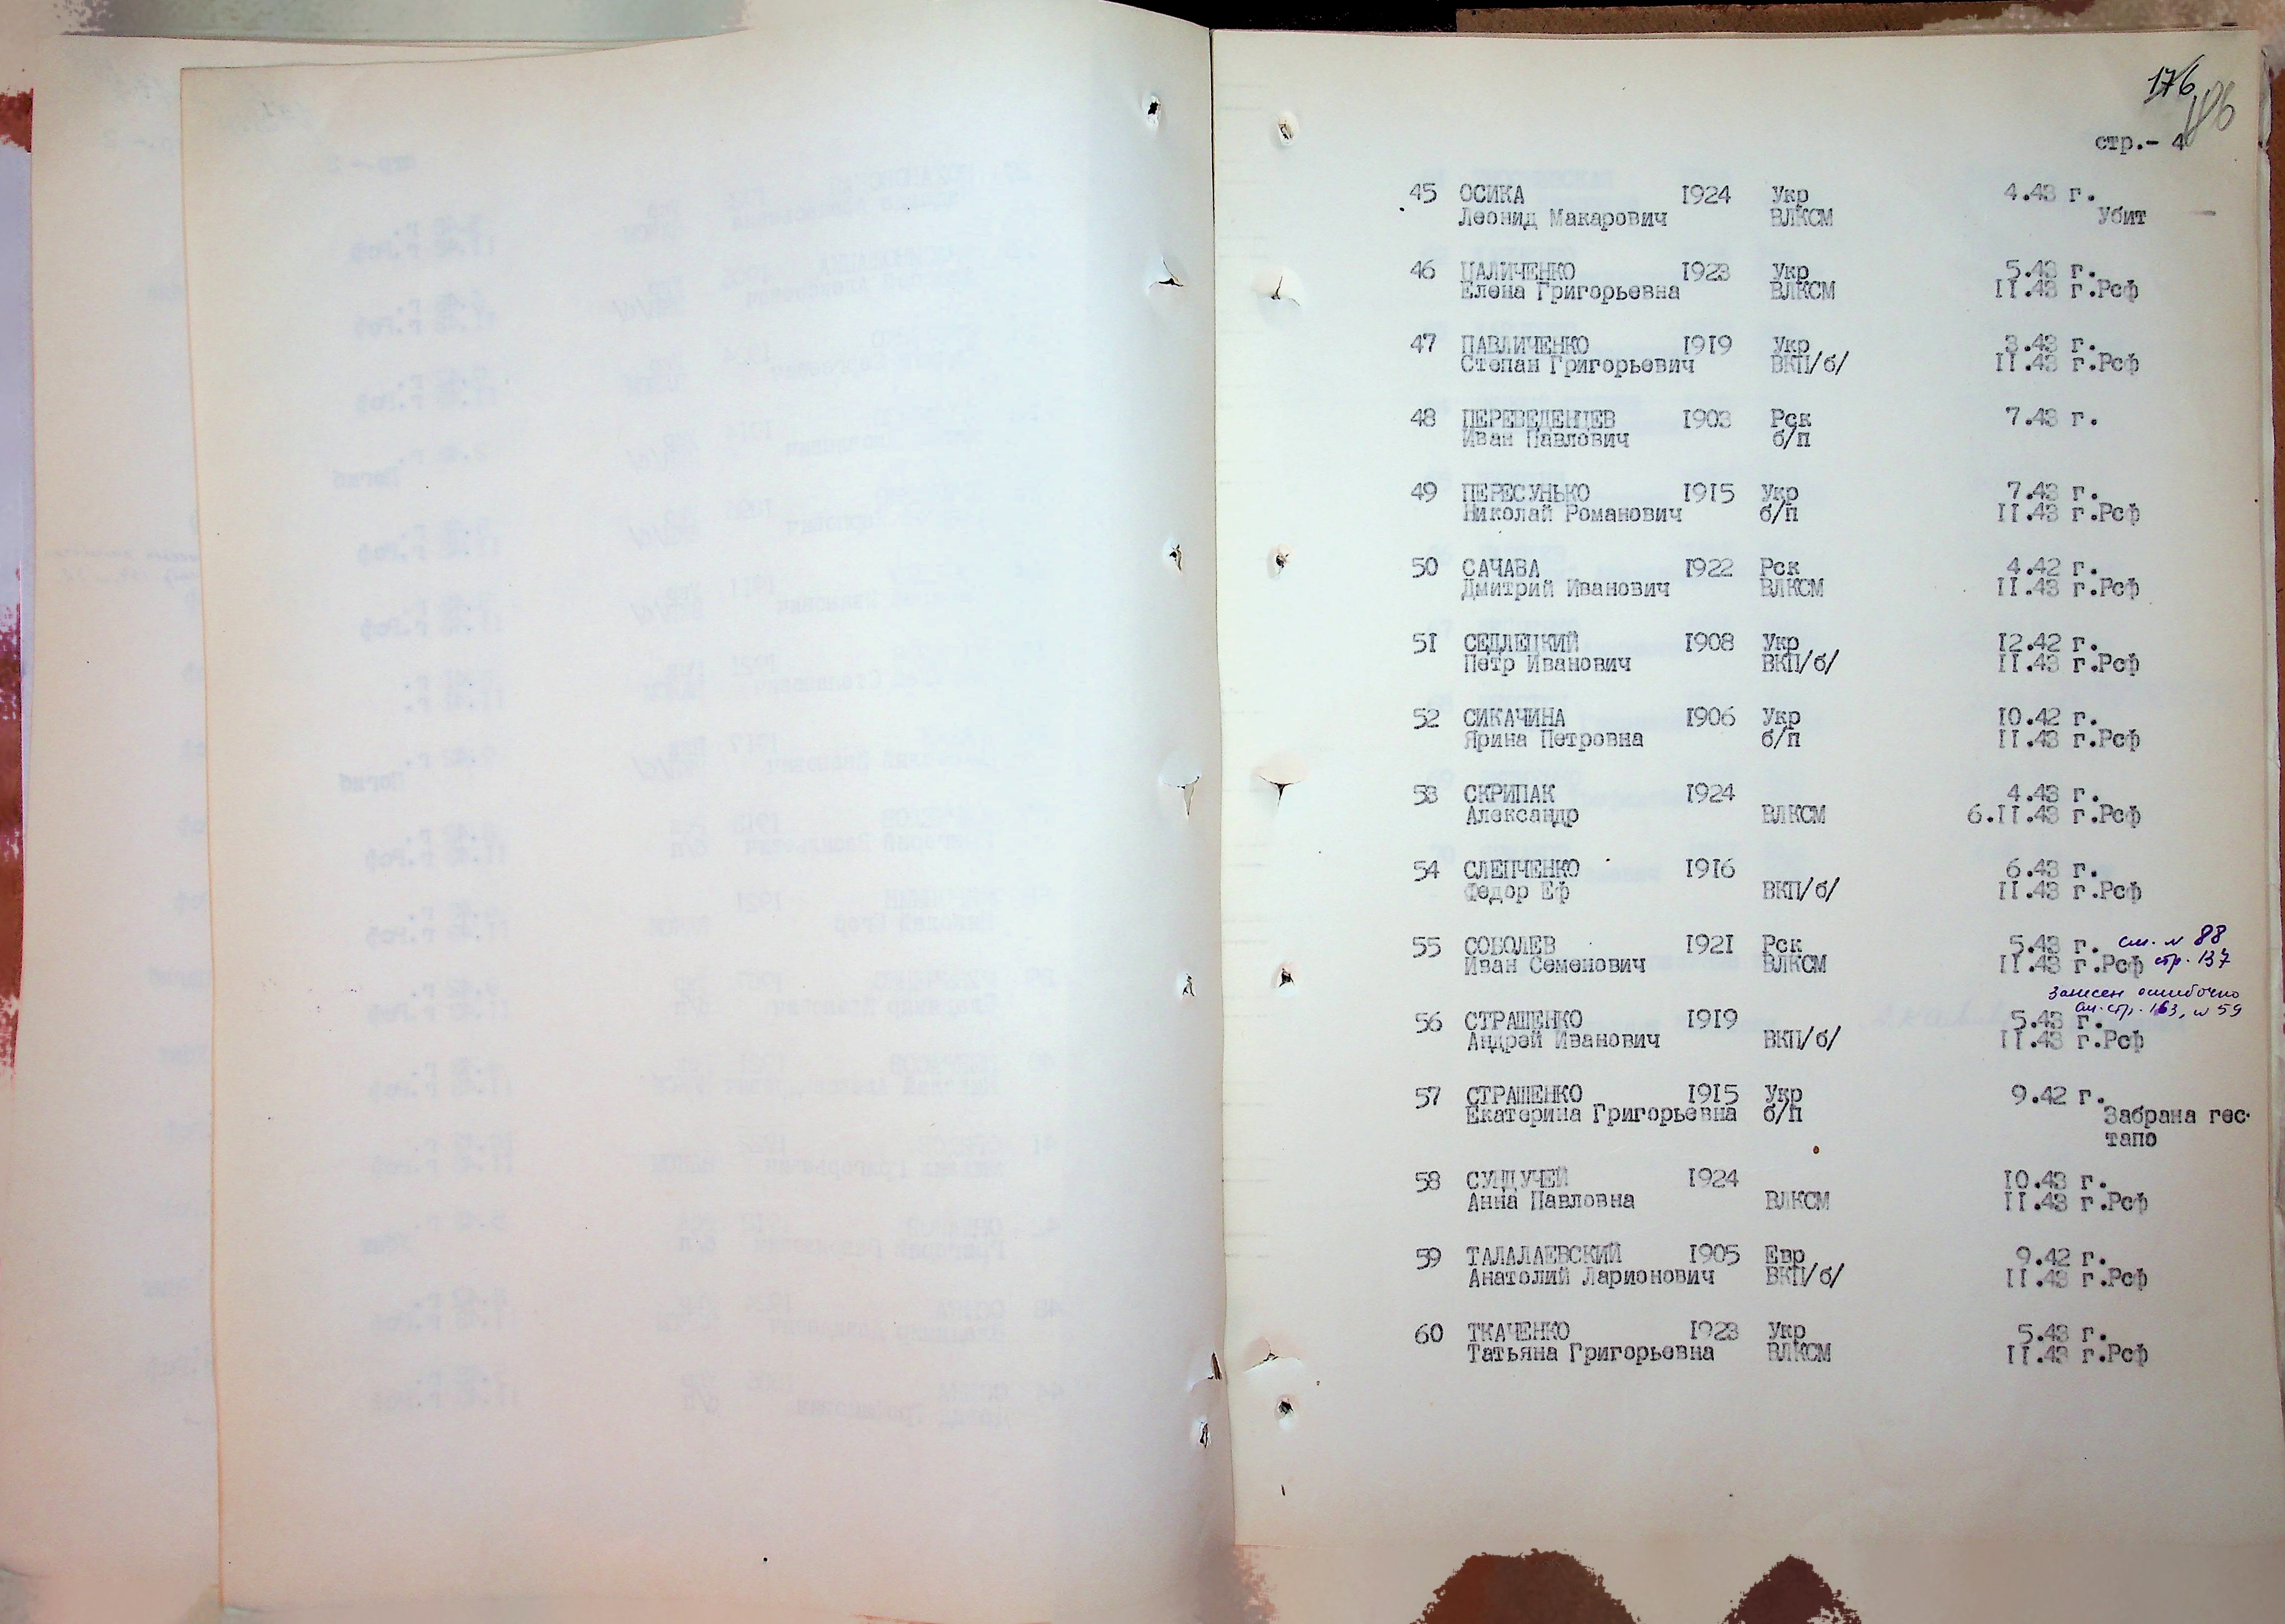 176
186
стр.- 4
45 ОСИКА 1924 Укр 4.43 г.
Леонид Макарович ВЛКСМ Убит
46 ПАЛИЧЕНКО 1923 Укр 5.43 г.
Елена Григорьевна ВЛКСМ II.43 г.Рсф
47 ПАВЛИЧЕНКО 1919 Укр 3.43 г.
Степан Григорьевич ВКП/б/ II.43 г.Рсф
48 ПЕРЕВЕДЕНЦЕВ 1903 Рск 7.43 г.
Иван Павлович б/п
49 ПЕРЕСУНЬКО 1915 Укр 7.43 г.
Николай Романович б/п II.43 г.Рсф
50 САЧАВА 1922 Рск 4.42 г.
Дмитрий Иванович ВЛКСМ II.43 г.Рсф
51 СЕДЛЕЦКИЙ 1908 Укр 12.42 г.
Петр Иванович ВКП/б/ II.43 г.Рсф
52 СИКАЧИНА 1906 Укр 10.42 г.
Ярина Петровна б/п II.43 г.Рсф
53 СКРИПАК 1924 4.43 г.
Александр ВЛКСМ 6.II.43 г.Рсф
54 СЛЕПЧЕНКО 1916 6.43 г.
Федор Еф ВКП/б/ II.43 г.Рсф
55 СОБОЛЕВ 1921 Рск 5.43 г. см. № 88
Иван Семенович ВЛКСМ II.43 г.Рсф стр. 137
Записан ошибочно
см. стр. 163, № 59
56 СТРАШЕНКО 1919 5.43 г.
Андрей Иванович ВКП/б/ II.43 г.Рсф
57 СТРАШЕНКО 1915 Укр 9.42 г.
Екатерина Григорьевна б/п Забрана гес-
тапо
58 СУНДУЧЕЙ 1924 10.43 г.
Анна Павловна ВЛКСМ II.43 г.Рсф
59 ТАЛАЛАЕВСКИЙ 1905 Евр 9.42 г.
Анатолий Ларионович ВКП/б/ II.43 г.Рсф
60 ТКАЧЕНКО 1923 Укр 5.43 г.
Татьяна Григорьевна ВЛКСМ II.43 г.Рсф